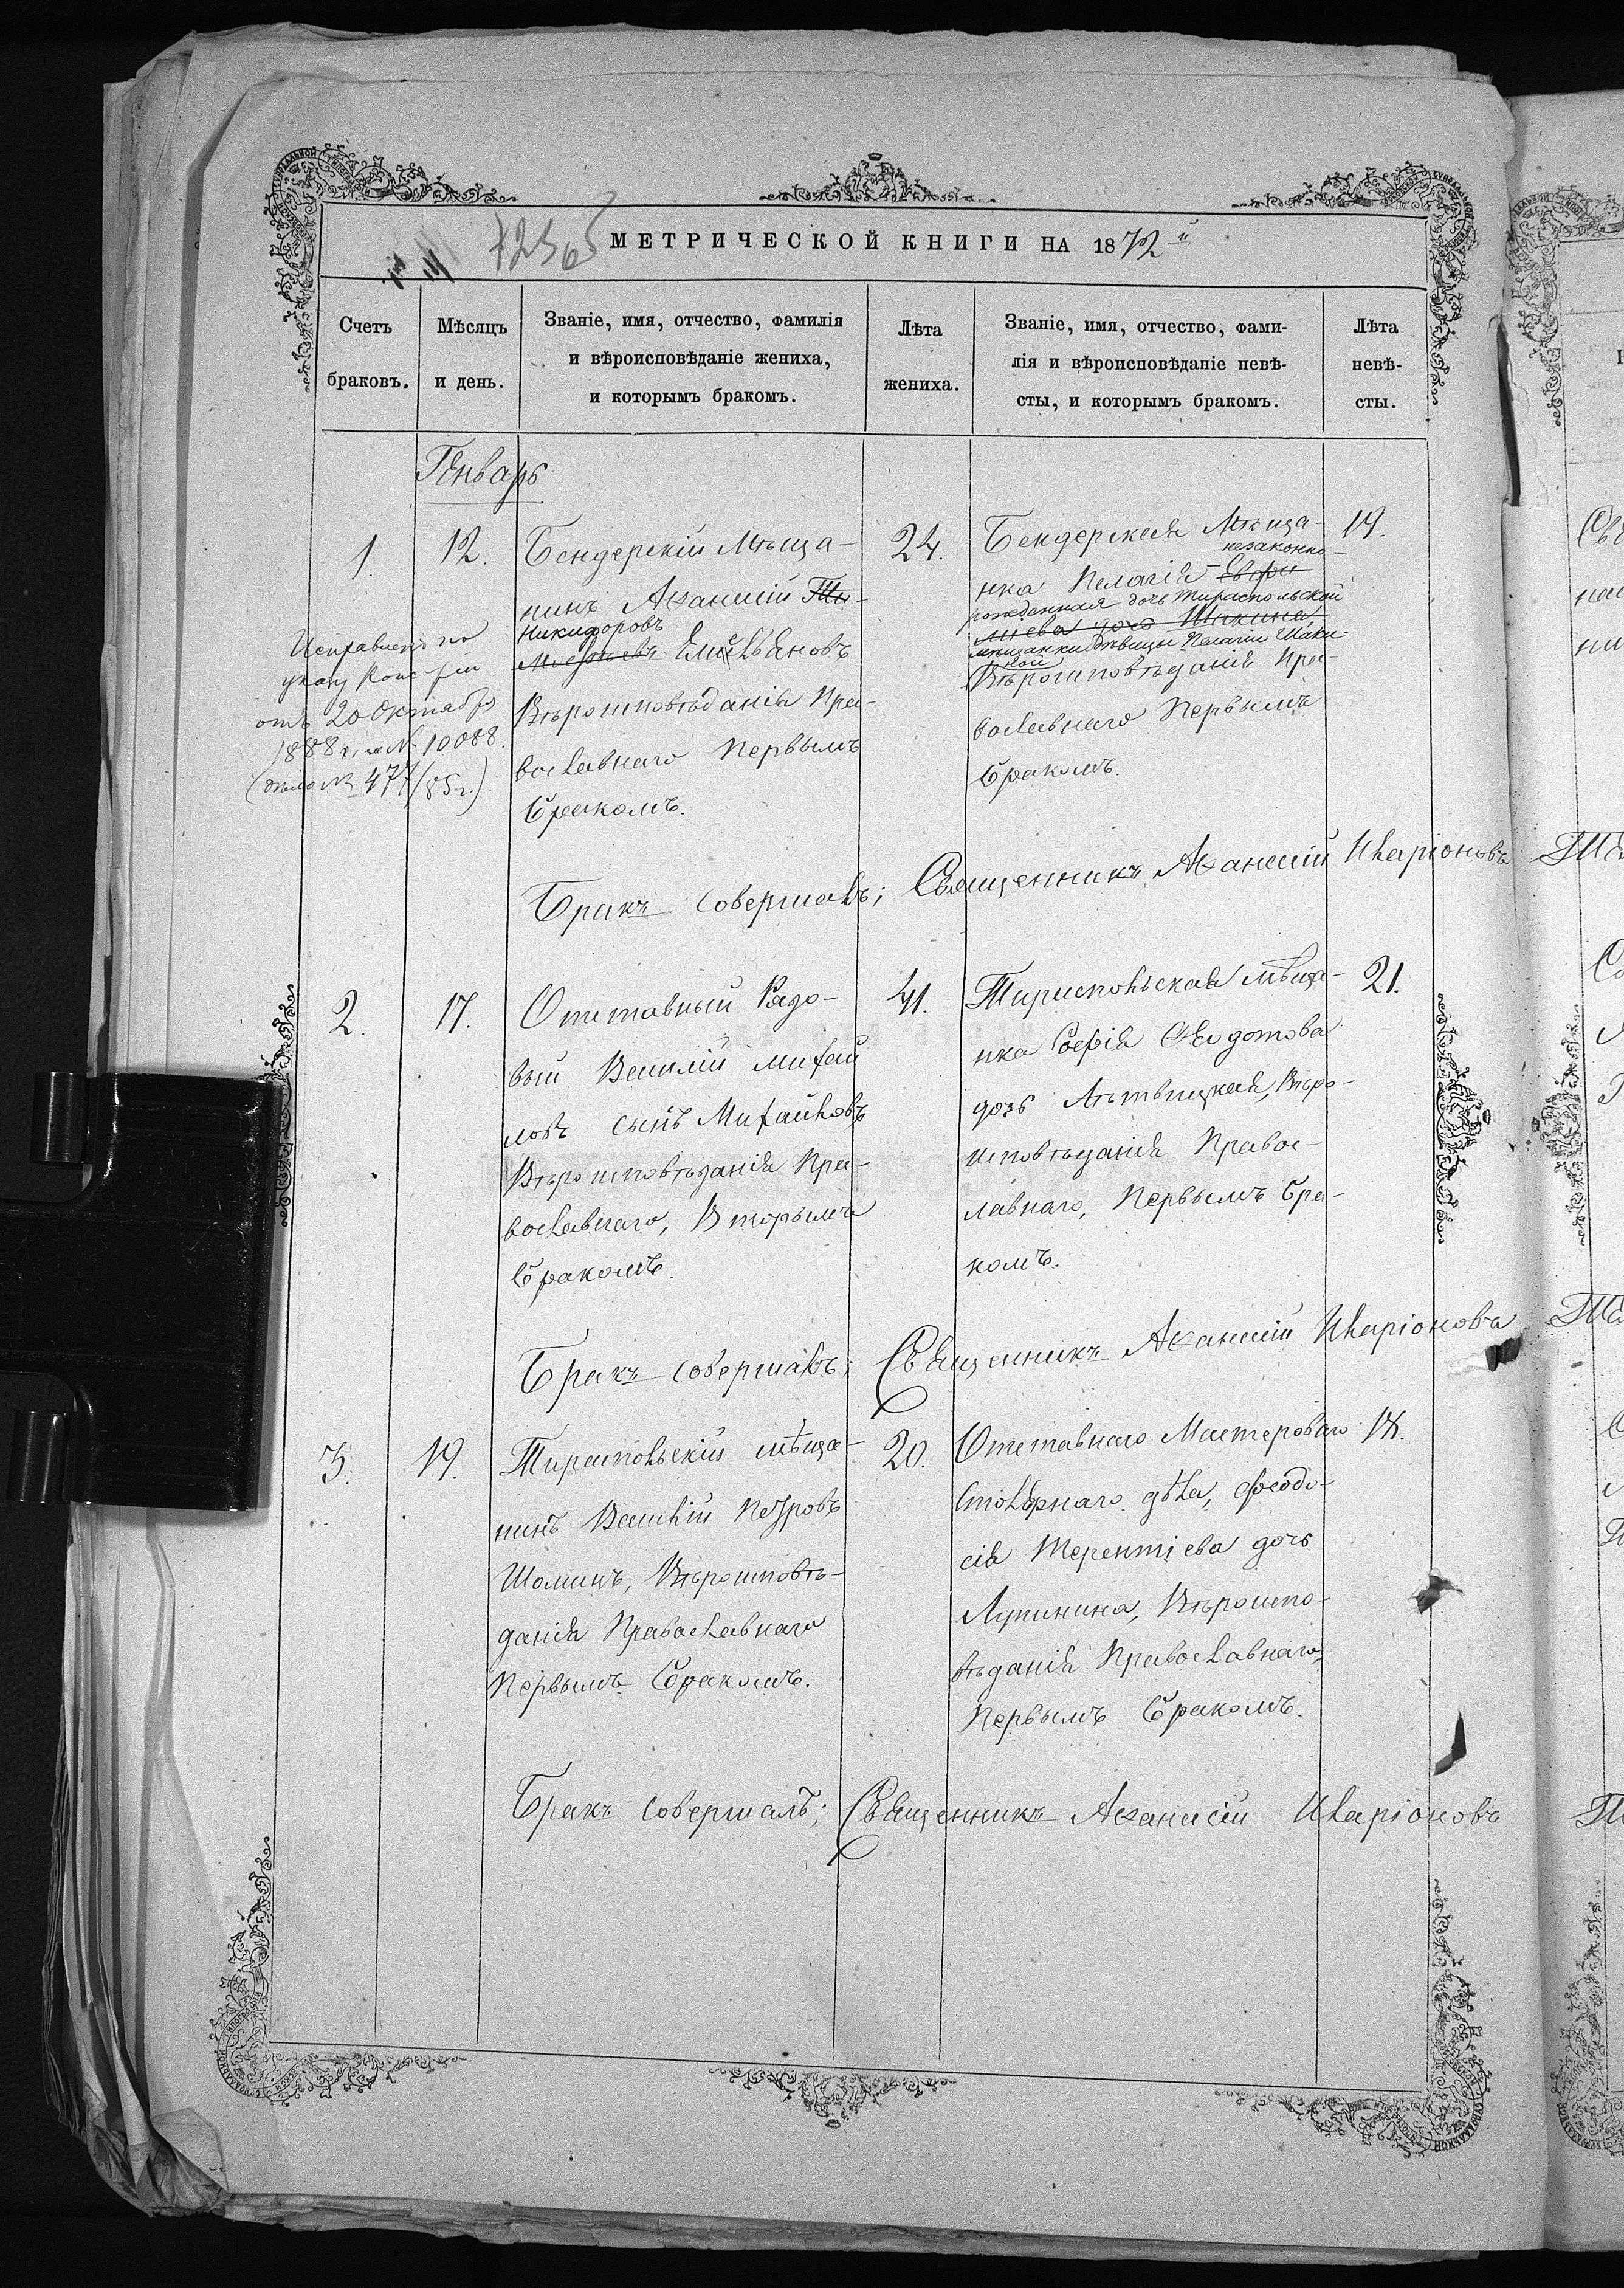 МЕТРИЧЕСКОЙ КНИГИ НА 1872й
Счетъ браковъ.
Мѣсяцъ и день.
Званіе, имя, отчество, фамилія
и вѣроисповѣданіе жениха,
и которымъ бракомъ.
Лѣта жениха.
Званіе, имя, отчество, фами-
лія и вѣроисповѣданіе невѣ-
сты, и которымъ бракомъ.
Лѣта невѣ-
сты.
Генварь
1.
12.
Бендерскій Мѣща-
нинъ Аѳанасій
Никифоровъ
Емельяновъ
Вѣроисповѣданія Пра-
вославнаго Первымъ
Бракомъ.
24.
Бендерская Мѣща-
незаконно-
нка Пелагія
рожденная дочь Тираспольской
мѣщанки дѣвицы Пелагіи Шаки-
ной
Вѣроисповѣданія Пра-
вославнаго Первымъ
Бракомъ.
19.
Исправлено по
указу Конс-ріи
отъ 20 Октября
1888 г. за № 10088.
(дѣло № 477/85 г.)
Бракъ совершалъ; Священникъ Аѳанасій Иларіоновъ
2.
17.
Отставный Рядо-
вый Василій Михай
ловъ сынъ Михайловъ
Вѣроисповѣданія Пра-
вославнаго, Вторымъ
Бракомъ.
41.
Тираспольская мѣща-
нка Софія Ѳеодотова
дочь Лѣтвицкая, Вѣро-
исповѣданія Правос-
лавнаго, Первымъ Бра-
комъ.
21.
Бракъ совершалъ; Священникъ Аѳанасій Иларіоновъ
3.
19.
Тираспольскій мѣща-
нинъ Василій Петровъ
Шоминъ, Вѣроисповѣ-
данія Православнаго
Первымъ Бракомъ.
20.
Отставнаго Мастероваго
Столярнаго дѣла, Феодо-
сія Терентіева дочь
Лупинина, Вѣроиспо-
вѣданія Православнаго,
Первымъ Бракомъ.
18.
Бракъ совершалъ; Священникъ Аѳанасій Иларіоновъ